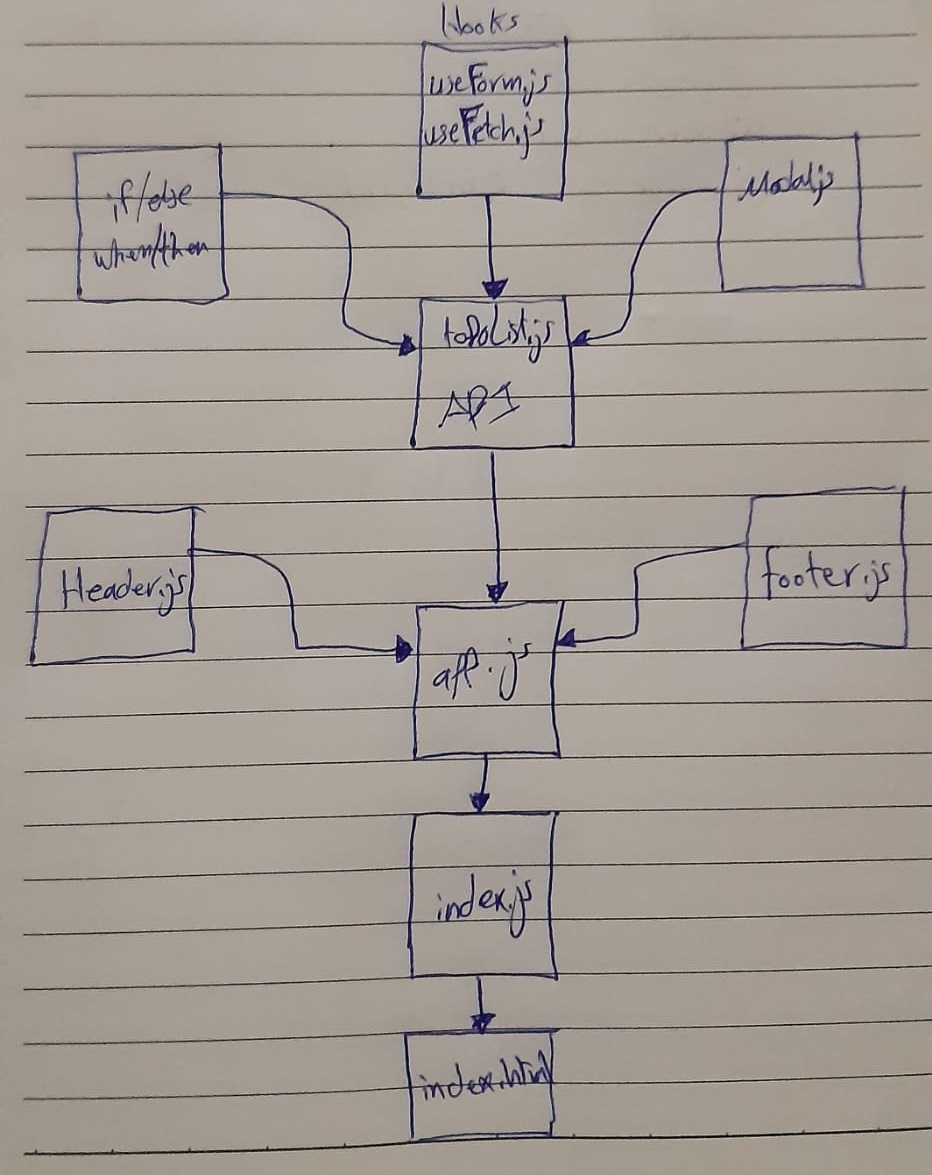 Hooks
useForm.js
useFetch.js
if/else
when/then
Modal.js
toDoList.js
API
Header.js
footer.js
app.js
index.js
index.html